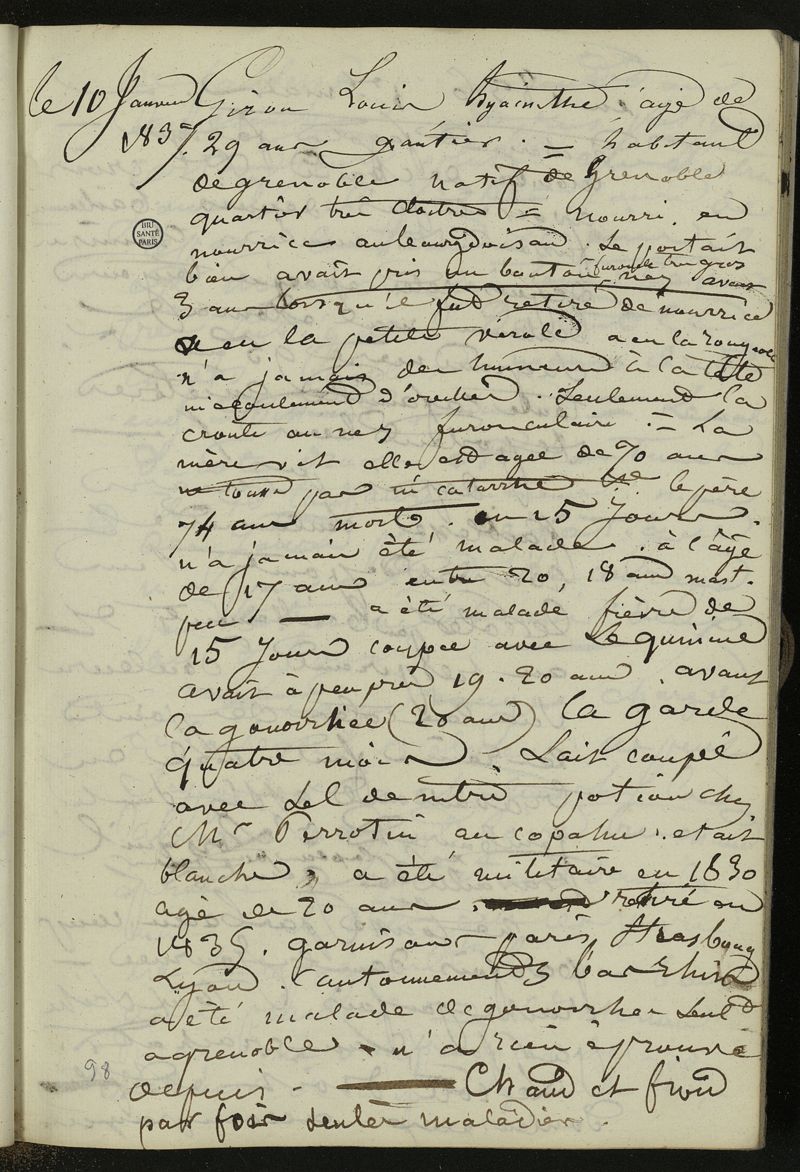 le 10 Janvier Giron Louis hyacinthe agé de
1837. 29 ans gantier. = habitant
de grenoble natif de Grenoble
quartier tres cloitre = nourri en
BIU SANTÉ PARIS
nourrice au bourgdoisan. Se portait
bien avait pris un bouton furoncle tres gros nez avant
3 ans lorsqu'il fut retiré de nourrice
a eu la petite vérole a eu la rougeole
n'a jamais des humeurs à la tete
ni ecoulement d'oreilles. Seulement la
croute au nez furonculaire. = La
mère vit elle est agee de 70 ans
ne tousse pas ni catarrhe le père
74 ans mort. en 15 Jours.
n'a jamais été malade. à l'âge
de 17 ans entre 20, 18 ans mast.
peu — a été malade fièvre de
15 Jours coupee avec Le quinine
avait à peu près 19. 20 ans. avant
la gonorrhee (20 ans) la garde
quatre mois. Lait coupé
avec sel de nitre potion chez
Mr Perrotin au copahu. etait
blanche, a été militaire en 1830
agé de 20 ans. retiré en
1835. garnisons paris, Strasbourg
Lyon. Cantonnements bas rhin
a été malade de gonorrhee seult
a grenoble n'a rien éprouvé
98
depuis. — Chaud et froid
par fois seules maladies.